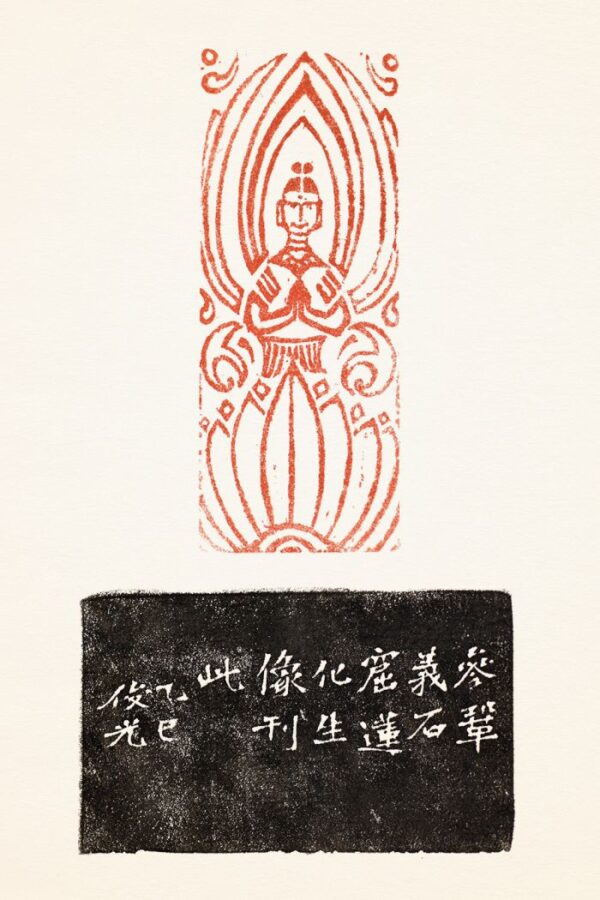 參鞏
義石
窟蓮
化生
像刊
此
乙巳
俊光